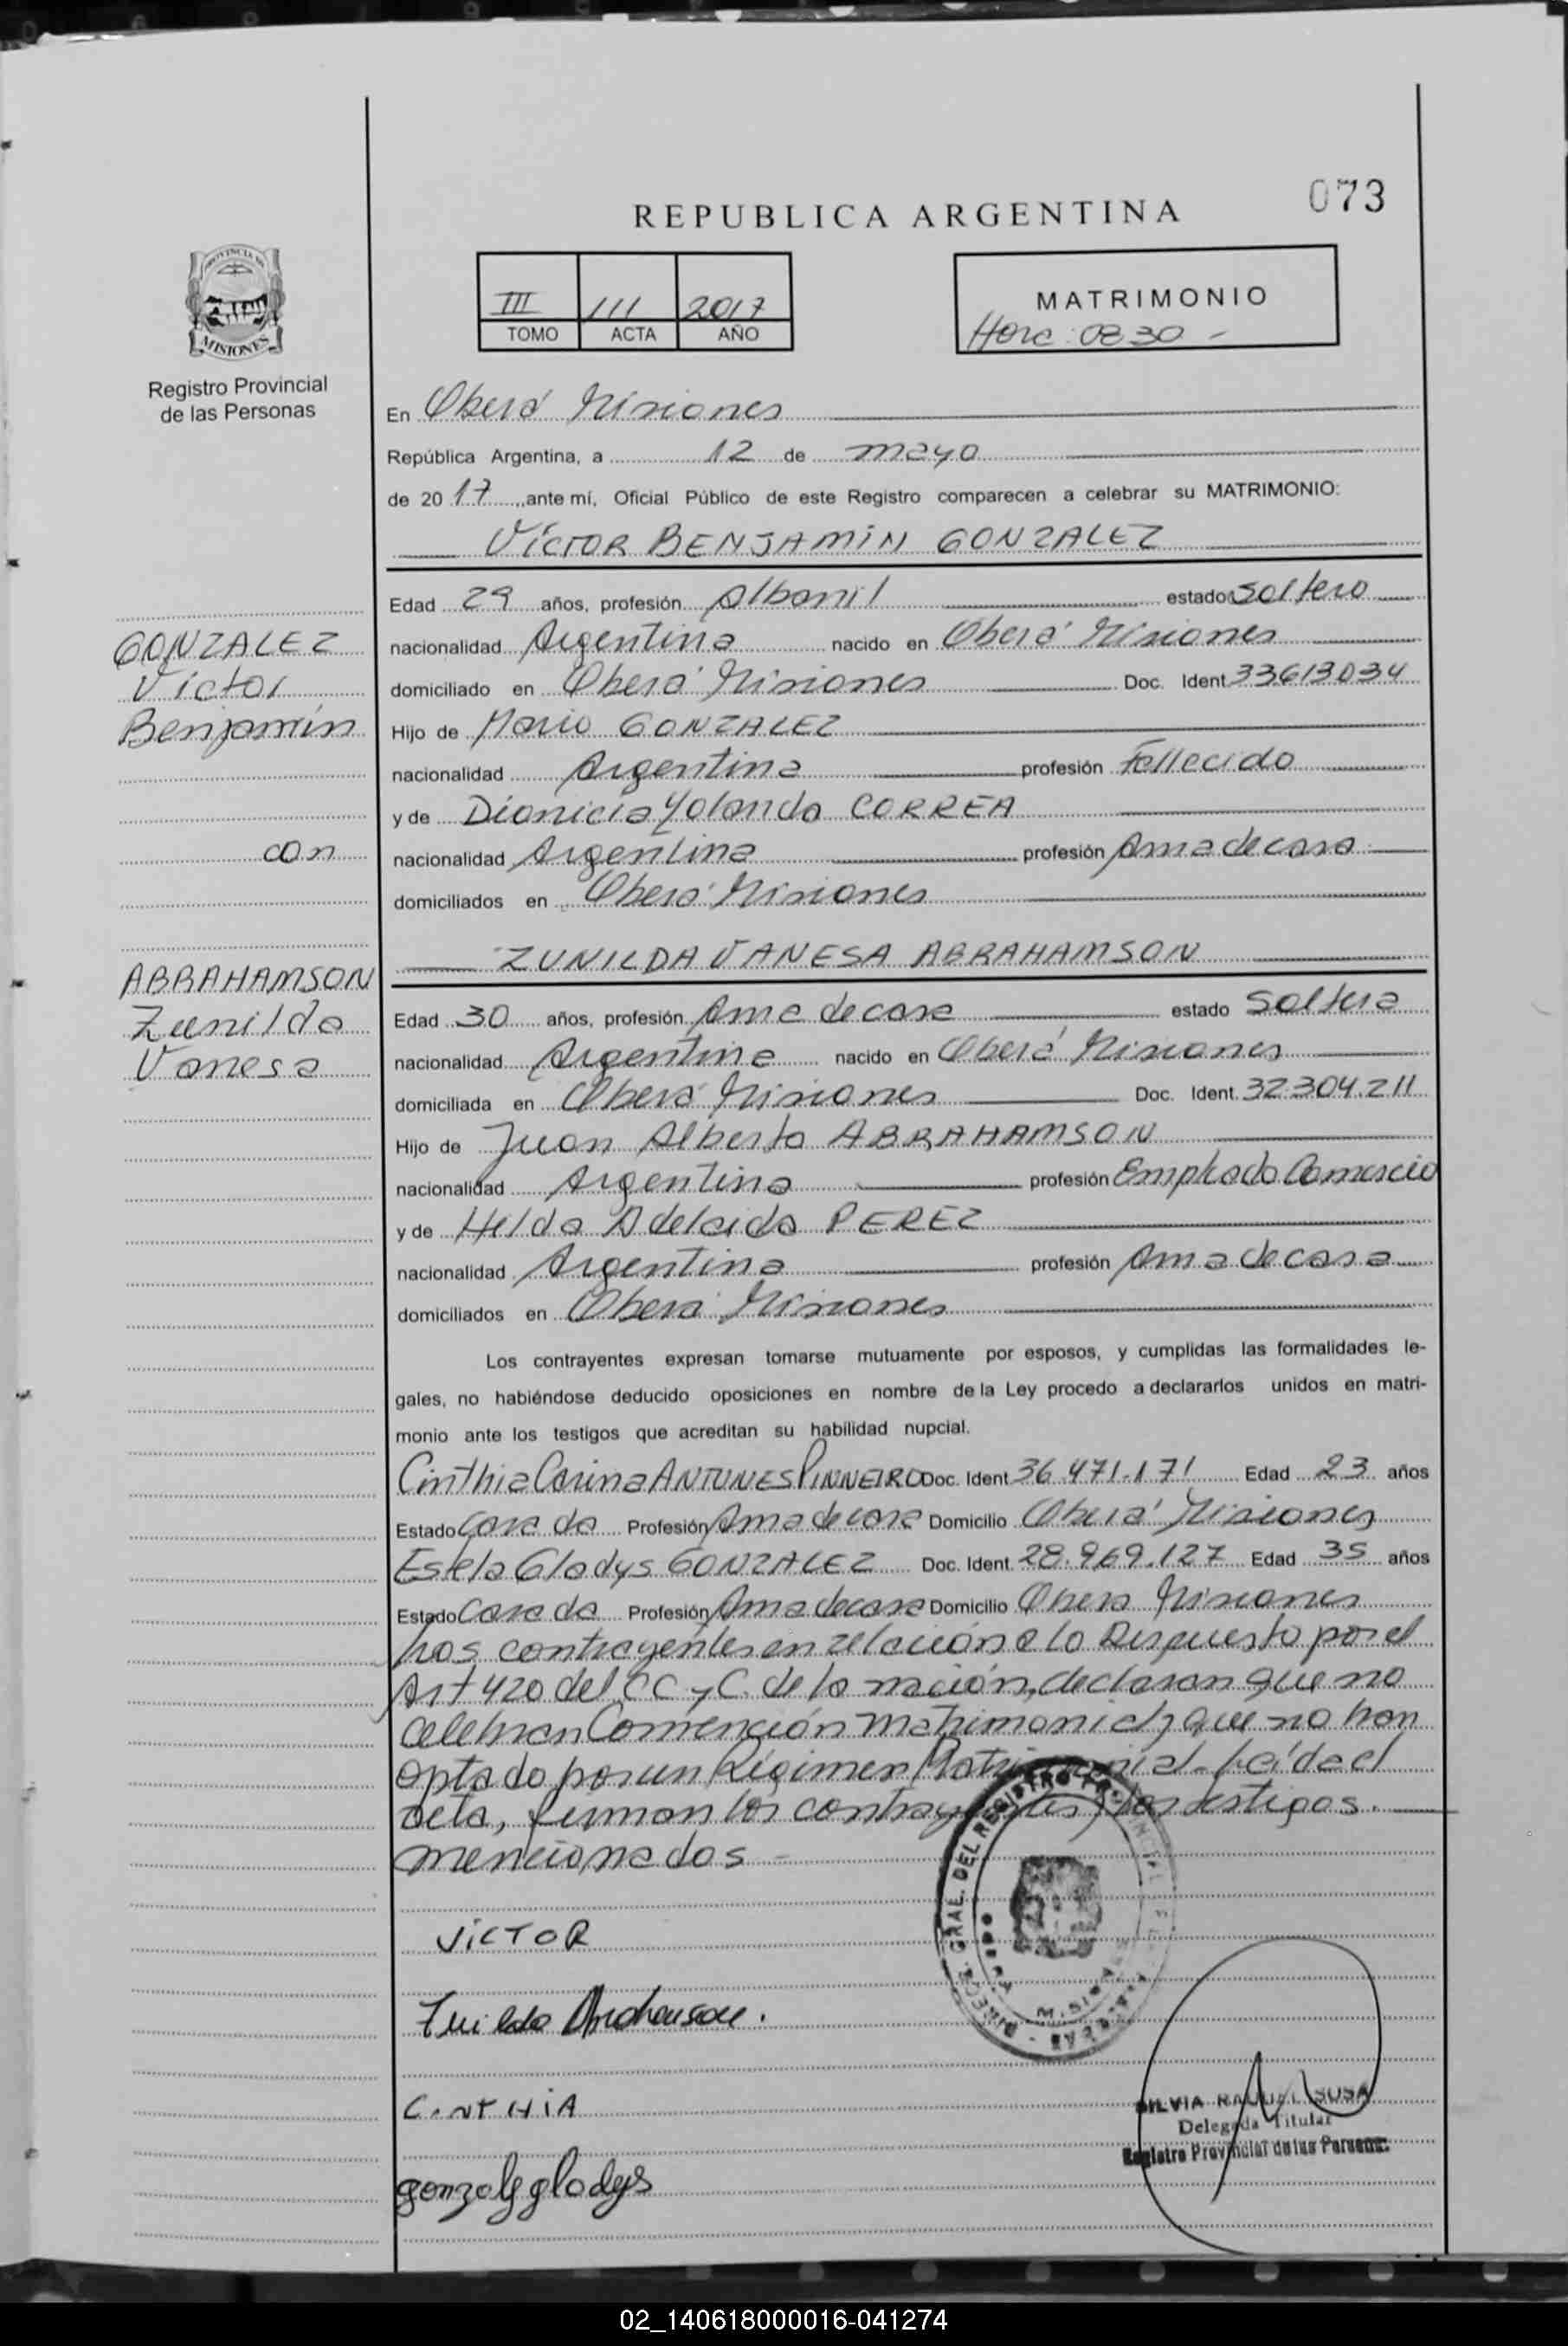 073
REPUBLICA ARGENTINA
PROVINCIA DE
MISIONES
Registro Provincial
de las Personas
III 111 2017
TOMO ACTA AÑO
MATRIMONIO
Hora: 0830 -
En Oberá Misiones
República Argentina, a 12 de mayo
de 20 17, ante mí, Oficial Público de este Registro comparecen a celebrar su MATRIMONIO:
VíCTOR BENJAMiN GONZALEZ
Edad 29 años, profesión Albanil estado soltero
GONZALEZ
Victor
Benjamín
con
ABRAHAMSON
Zunilda
Vanesa
nacionalidad Argentina nacido en Oberá Misiones
domiciliado en Oberá Misiones Doc. Ident. 33613034
Hijo de Mario GONZALEZ
nacionalidad Argentina profesión Fallecido
y de Dionicia Yolanda CORREA
nacionalidad Argentina profesión Ama de casa
domiciliados en Oberá Misiones
ZUNILDA VANESA ABRAHAMSON
Edad 30 años, profesión Ama de casa estado Soltera
nacionalidad Argentina nacido en Oberá Misiones
domiciliada en Oberá Misiones Doc. Ident. 32.304.211
Hijo de Juan Alberto ABRAHAMSON
nacionalidad Argentina profesión Empleado Comercio
y de Helda Adelaida PEREZ
nacionalidad Argentina profesión Ama de casa
domiciliados en Oberá Misiones
Los contrayentes expresan tomarse mutuamente por esposos, y cumplidas las formalidades le-
gales, no habiéndose deducido oposiciones en nombre de la Ley procedo a declararlos unidos en matri-
monio ante los testigos que acreditan su habilidad nupcial.
Cinthia Carina ANTUNES PINNEIRO Doc. Ident. 36.471.171 Edad 23 años
Estado Casada Profesión Ama de casa Domicilio Oberá Misiones
Estela Gladys GONZALEZ Doc. Ident. 28.969.127 Edad 35 años
Estado Casada Profesión Ama de casa Domicilio Obera Misiones
Los contrayentes en relación a lo Dispuesto por el
Art 420 del CC y C. de la nación, declaran que no
celebran Convención matrimonial y que no han
optado por un Régimen Matrimonial - Leída el
acta, firman los contrayentes y los testigos.
mencionados -
ViCTOR
Zunilda Abrahamson.
CiNTHiA
gonzalez gladys
DIRECC. GRAL. DEL REGISTRO PROVINCIAL
SILVIA RAQUEL SUSA
Delegada Titular
Registro Provincial de las Personas
02_140618000016-041274